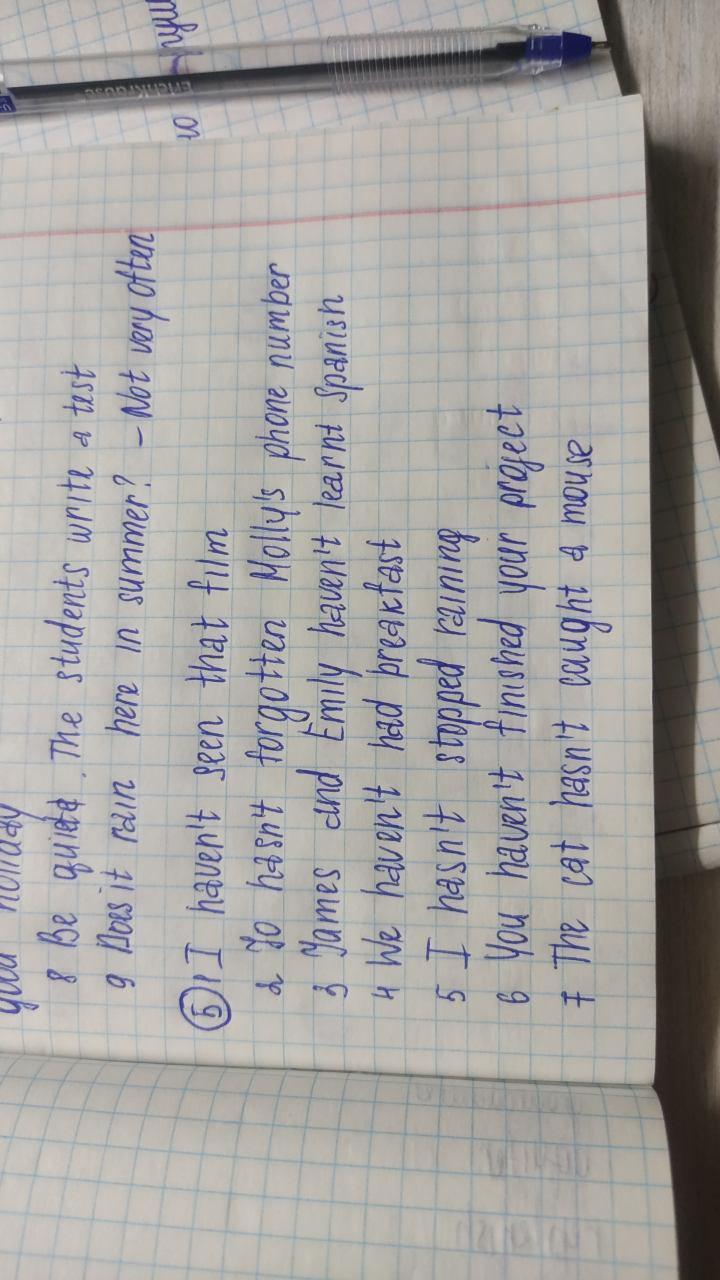 8 Be quiet. The students write a test
9 Does it rain here in summer? - Not very often
5) 1 I haven't seen that film
2 Jo hasn't forgotten Molly's phone number
3 James and Emily haven't learnt Spanish
4 We haven't had breakfast
5 I hasn't stopped raining
6 You haven't finished your project
7 The cat hasn't caught a mouse
ErichKrause